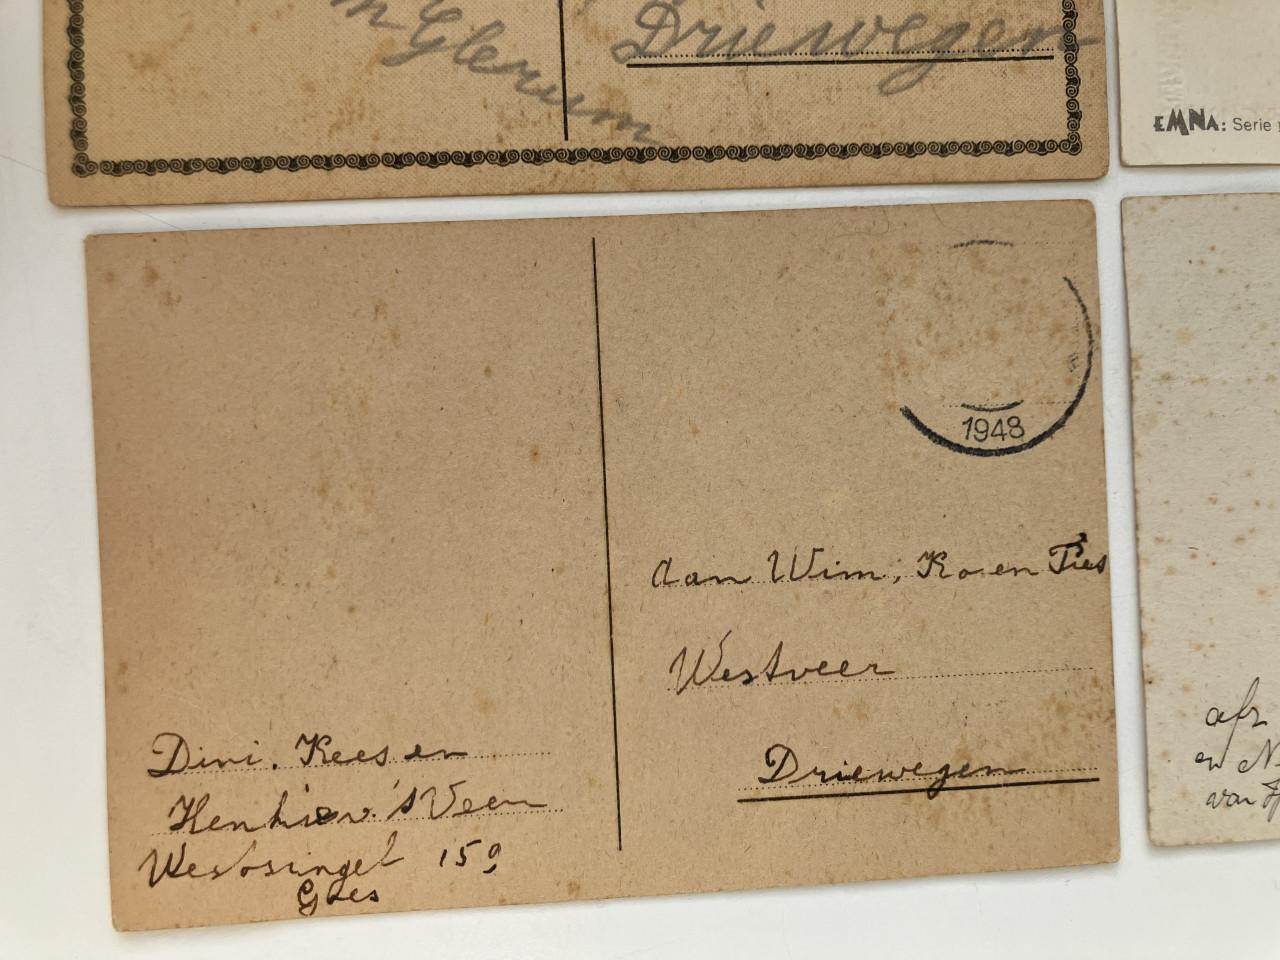 Glerum
Driewegen
EMNA: Serie
1948
aan Wim, Ko en Pies
Westveer
Driewegen
Dini. Kees en
v. 't Veen
Westsingel 159
Goes
afz
en
van